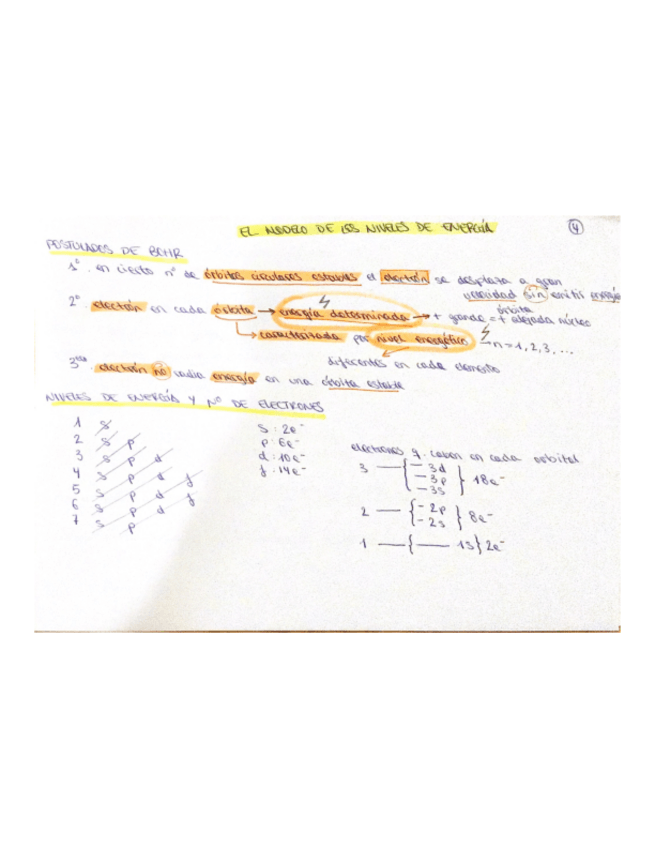 EL MODELO DE LOS NIVELES DE ENERGÍA
4
POSTULADOS DE BOHR
1º. en cierto nº de órbitas circulares estables el electrón se desplaza a gran
velocidad sin emitir energía
2º electrón en cada órbita → energía determinada → + grande órbita = + alejada núcleo
→ caracterizada por nivel energético → n = 1, 2, 3, ...
diferentes en cada elemento
electrón no radia energía en una órbita estable
NIVELES DE ENERGÍA Y Nº DE ELECTRONES
1 s
2 s p
3 s p d
4 s p d f
5 s p d f
6 s p d
7 s p
s: 2e⁻
p: 6e⁻
d: 10e⁻
f: 14e⁻
electrones q. caben en cada orbital
3 — { – 3d – 3p – 3s } 18e⁻
2 — { – 2p – 2s } 8e⁻
1 — { — 1s } 2e⁻